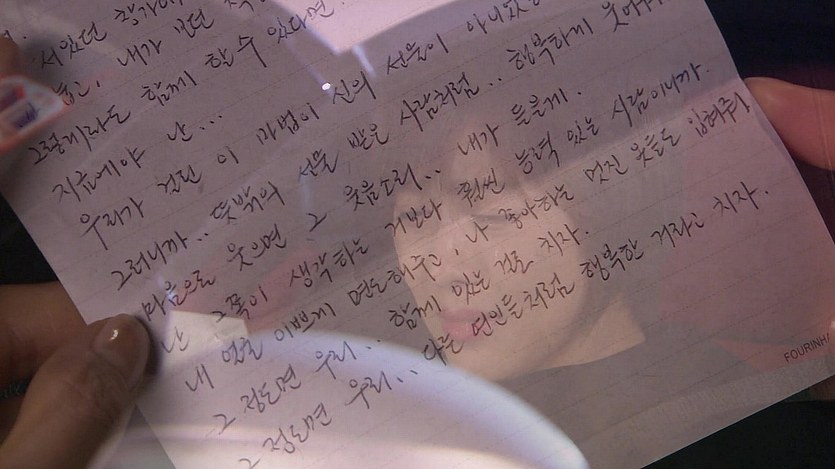 서있던
내가
그렇게라도 함께 할 수 있다면.
지금에야 난...
우리가 걸린 이 마법이 신의 선물이
그러니까.. 뜻밖의 선물 받은 사람처럼.. 행복하게
마음으로 웃으면 그 웃음소리.. 내가 들을게.
난 그쪽이 생각하는 거보다 훨씬 능력 있는 사람이니까.
내 얼굴 이쁘게 면도해주고, 나 좋아하는 멋진 옷들도 입혀줘
그 정도면 우리... 함께 있는 걸로 치자.
그 정도면 우리... 다른 연인들처럼 행복한 거라고 치자.
FOURINH